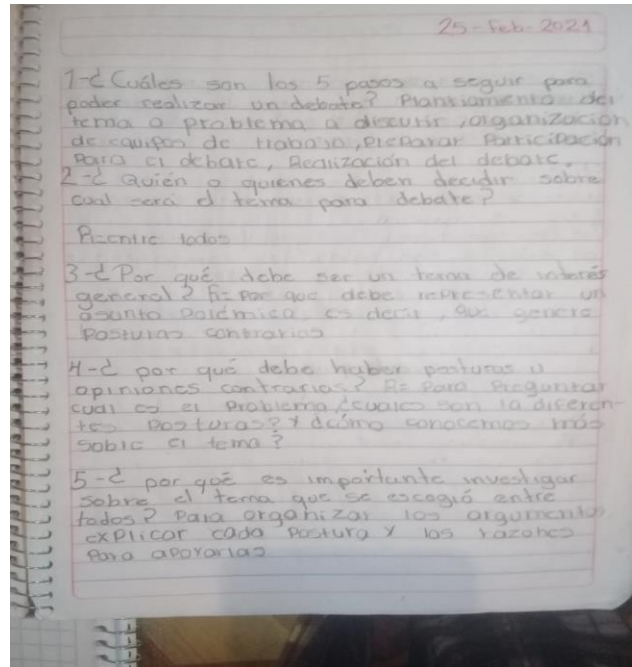 25-feb-2021
1-¿Cuáles son los 5 pasos a seguir para
poder realizar un debate? Plantiamiento del
tema o problema a discutir, organización
de equipos de trabajo, preparar Participación
Para el debate, Realización del debate.
2-¿Quién o quienes deben decidir sobre
cual será el tema para debate?
R=entre todos
3-¿Por qué debe ser un tema de interés
general? R= Por que debe representar un
asunto Polémico, es decir, que genere
Posturas contrarias
4-¿por qué debe haber posturas u
opiniones contrarias? R= Para Preguntar
cual es el Problema ¿cuales son la diferen-
tes Posturas? Y ¿cómo conocemos más
sobre el tema?
5-¿por qué es importante investigar
sobre el tema que se escogió entre
todos? Para organizar los argumentos
explicar cada Postura Y las razones
Para apoyarlas